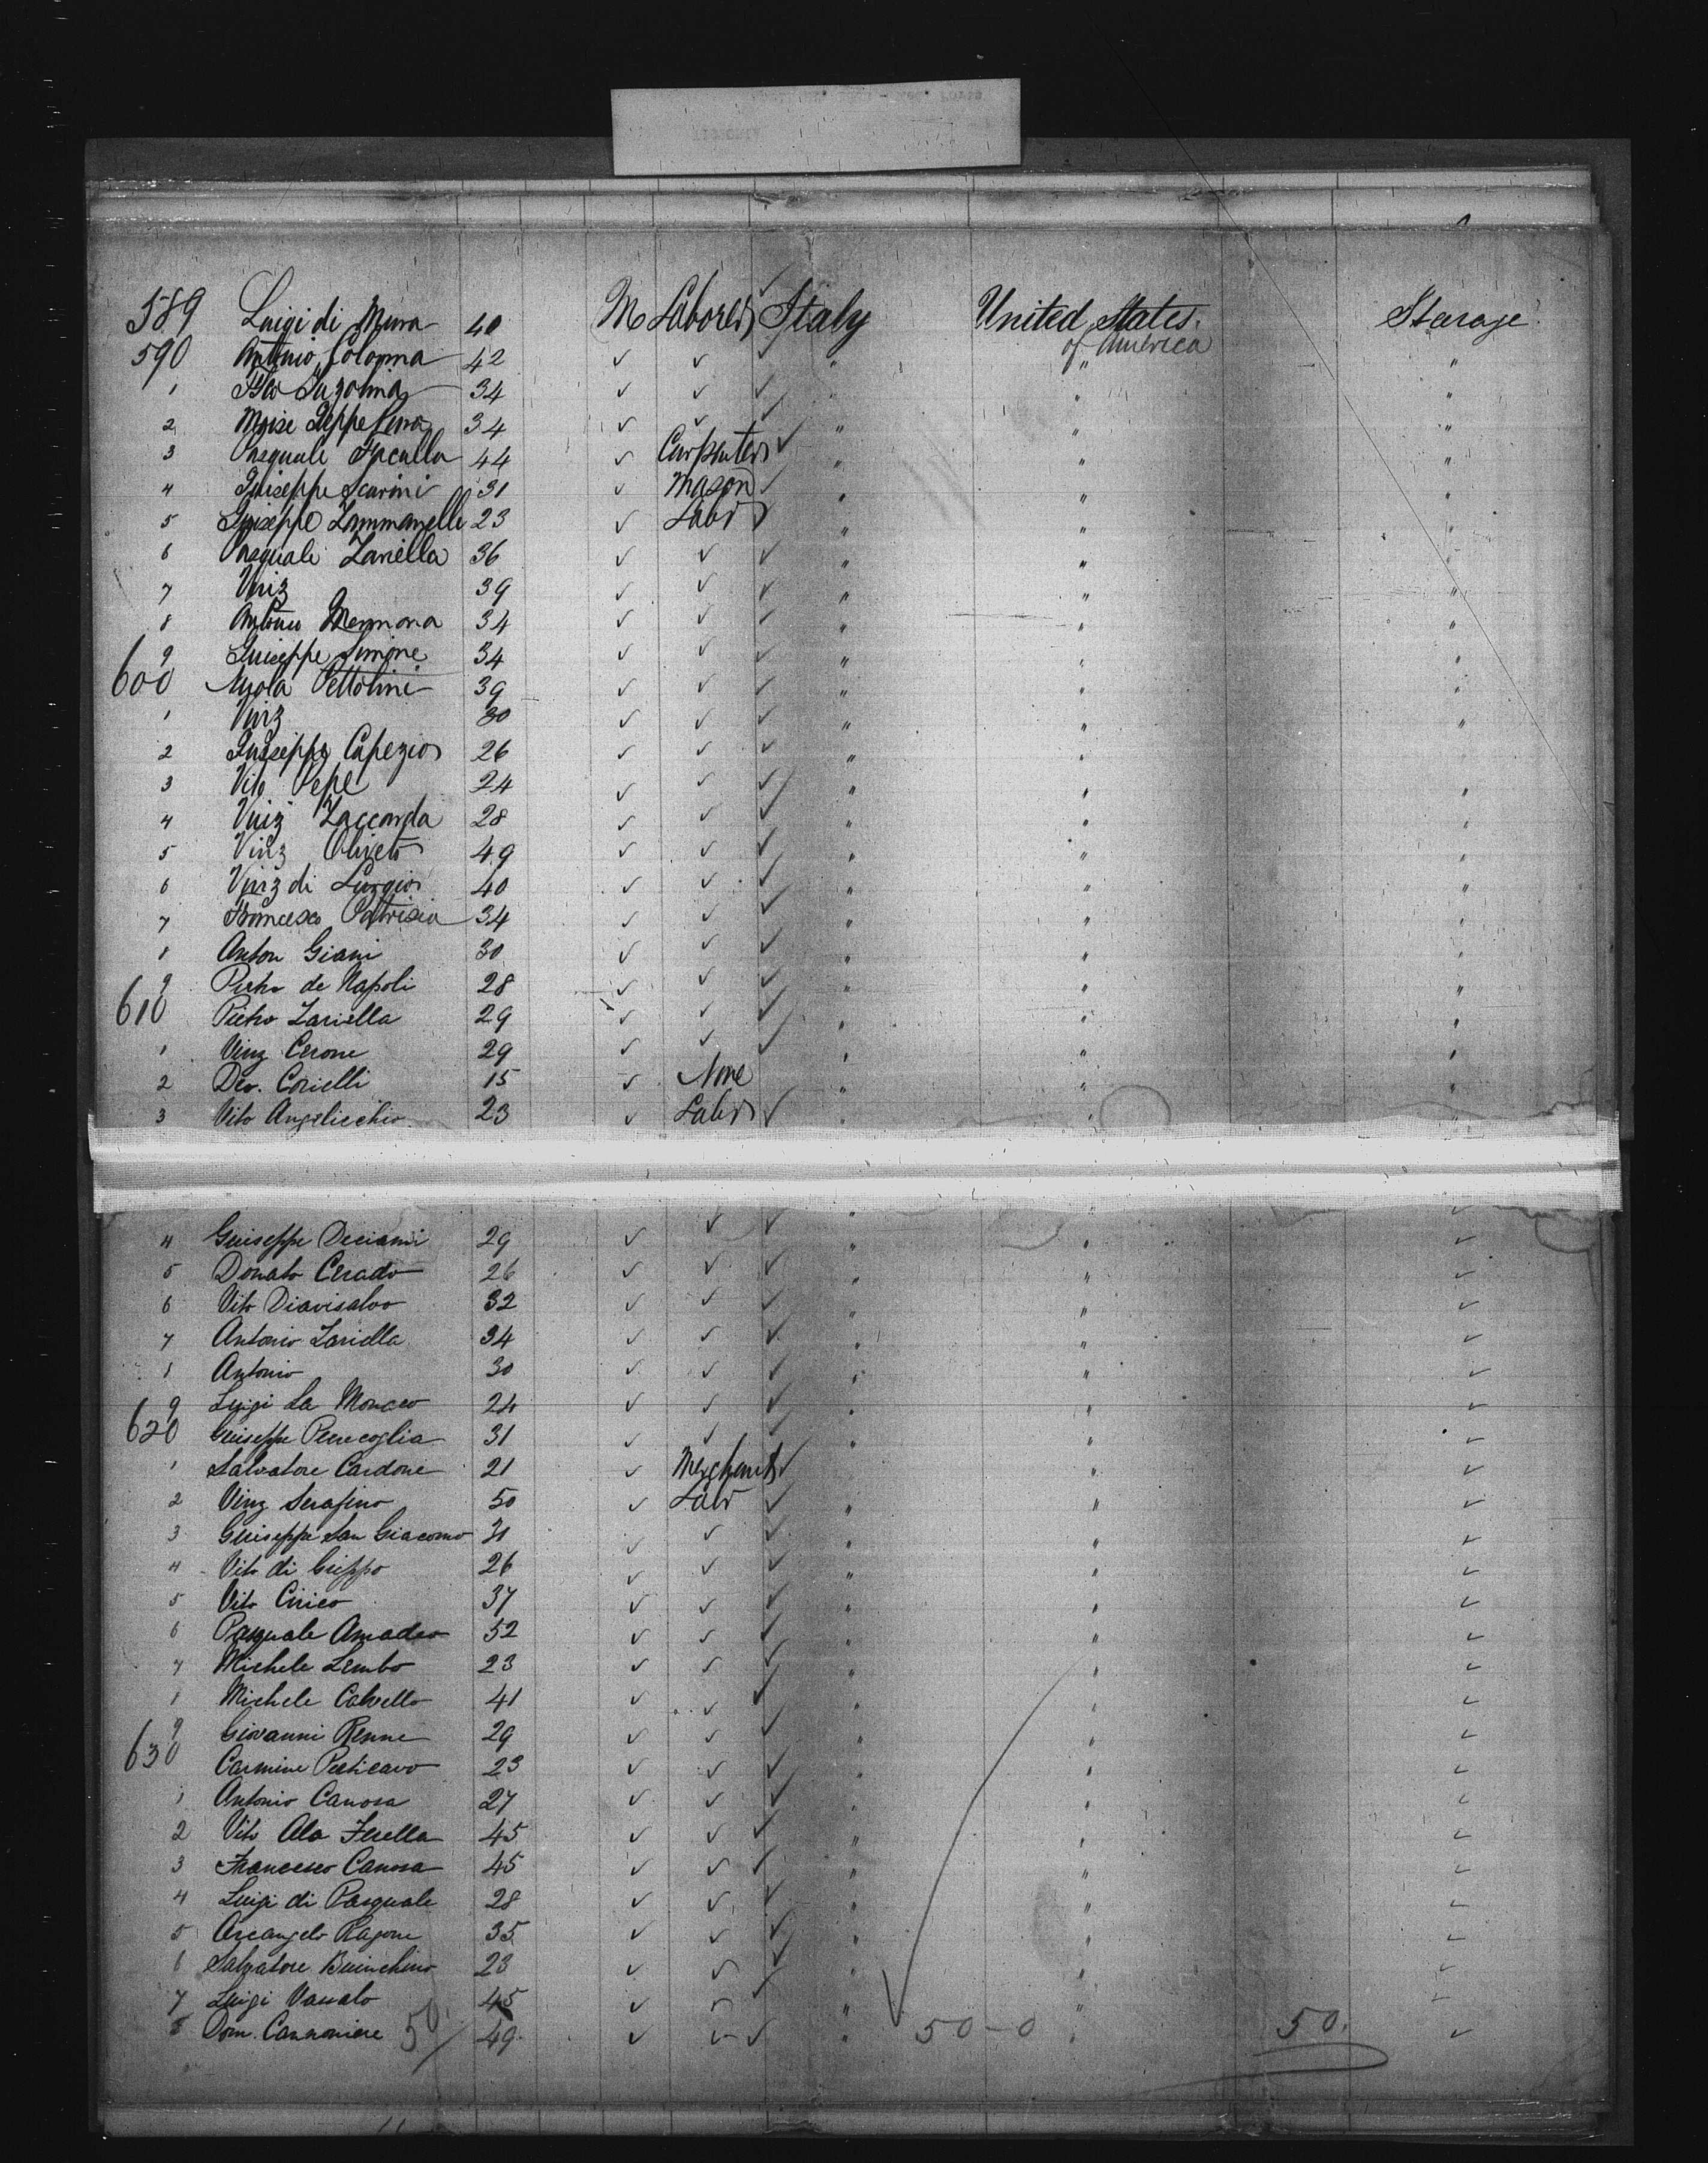 589 Luigi di Mura 40 M Laborer Italy United States. Steerage
of America
590 Antonio Bologna 42 ✓ ✓ ✓ " " "
1 34 ✓ ✓ ✓ " " "
2 34 ✓ ✓ ✓ " " "
3 Pasquale 44 ✓ Carpenter ✓ " " "
4 Giuseppe Scarini 31 ✓ Mason ✓ " " "
5 Giuseppe Zammanelle 23 ✓ Labr ✓ " " "
6 Pasquale Zariella 36 ✓ ✓ ✓ " " "
7 Vinz 39 ✓ ✓ ✓ " " "
8 Antonio Memmona 34 ✓ ✓ ✓ " " "
9 Giuseppe Simone 34 ✓ ✓ ✓ " " "
600 Nicola Pettolini 39 ✓ ✓ ✓ " " "
1 Vinz 30 ✓ ✓ ✓ " " "
2 Giuseppe Capezio 26 ✓ ✓ ✓ " " "
3 Vito Pepe 24 ✓ ✓ ✓ " " "
4 Vinz Zaccarda 28 ✓ ✓ ✓ " " "
5 Vinz Oliveto 49 ✓ ✓ ✓ " " "
6 Vinz di Lurgio 40 ✓ ✓ ✓ " " "
7 Francesco Patrisia 34 ✓ ✓ ✓ " " "
8 Anton Giani 30 ✓ ✓ ✓ " " "
9 Pietro de Napoli 28 ✓ ✓ ✓ " " "
610 Pietro Zariella 29 ✓ ✓ ✓ " " "
1 Vinz Cerone 29 ✓ ✓ ✓ " " "
2 Deo. Corielli 15 ✓ None " " "
3 Vito Angelicchio 23 ✓ Labr ✓ " " "
4 Giuseppe Deciami 29 ✓ ✓ ✓ " " ✓
5 Donato Cerado 26 ✓ ✓ ✓ " " ✓
6 Vito Diavisalvo 32 ✓ ✓ ✓ " " ✓
7 Antonio Zariella 34 ✓ ✓ ✓ " " ✓
8 Antonio 30 ✓ ✓ ✓ " " ✓
9 Luigi La Monaco 24 ✓ ✓ ✓ " " ✓
620 Giuseppe Pernecoglia 31 ✓ ✓ ✓ " " ✓
1 Salvatore Cardone 21 ✓ Merchant ✓ " " ✓
2 Vinz Serafino 50 ✓ Labr ✓ " " ✓
3 Giuseppe San Giacomo 31 ✓ ✓ ✓ " " ✓
4 Vito di Guippo 26 ✓ ✓ ✓ " " ✓
5 Vito Cirico 37 ✓ ✓ ✓ " " ✓
6 Pasquale Amadeo 52 ✓ ✓ ✓ " " ✓
7 Michele Lembo 23 ✓ ✓ ✓ " " ✓
8 Michele Calvello 41 ✓ ✓ ✓ " " ✓
9 Giovanni Renne 29 ✓ ✓ ✓ " " ✓
630 Carmine Perticaro 23 ✓ ✓ ✓ " " ✓
1 Antonio Canosa 27 ✓ ✓ ✓ " " ✓
2 Vito Ala Ferella 45 ✓ ✓ ✓ " " ✓
3 Francesco Canosa 45 ✓ ✓ ✓ " " ✓
4 Luigi di Pasquale 28 ✓ ✓ ✓ " " ✓
5 Arcangelo Ragone 35 ✓ ✓ ✓ " " ✓
6 Salvatore Buinchino 23 ✓ ✓ ✓ " " ✓
7 Luigi Vassalo 45 ✓ ✓ ✓ " " ✓
8 Dom. Cannoniere 50 49 ✓ ✓ ✓ " 50-0 " 50. ✓